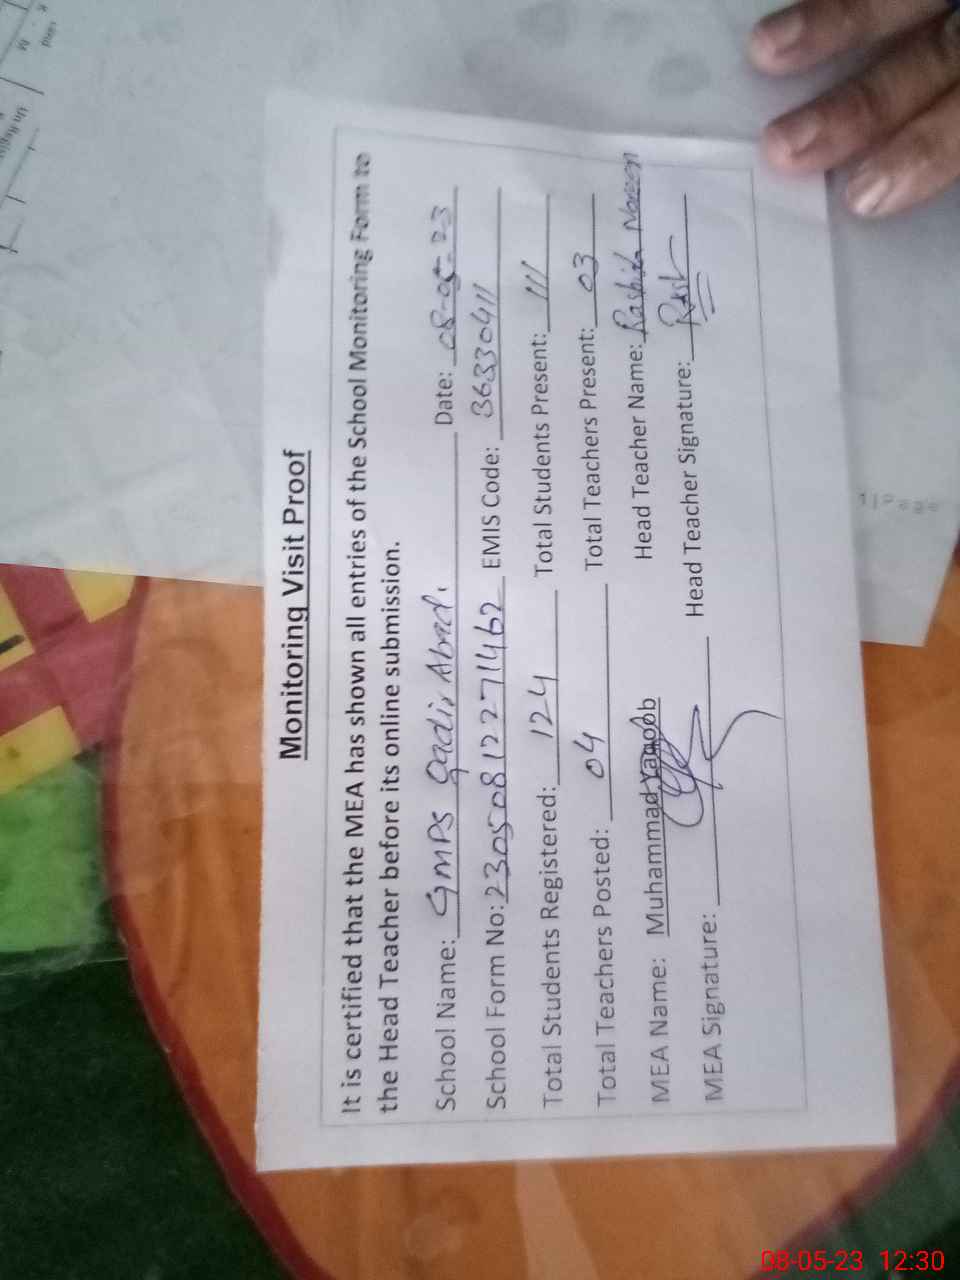 Monitoring Visit Proof
It is certified that the MEA has shown all entries of the School Monitoring Form to
the Head Teacher before its online submission.
School Name: GMPS Qadir Abad. Date: 08-05-23
School Form No: 230508122271462 EMIS Code: 36330411
Total Students Registered: 124 Total Students Present: 111
Total Teachers Posted: 04 Total Teachers Present: 03
MEA Name: Muhammad Yaqoob Head Teacher Name: Rashida Noreen
MEA Signature: Head Teacher Signature:
1|Page
08-05-23 12:30